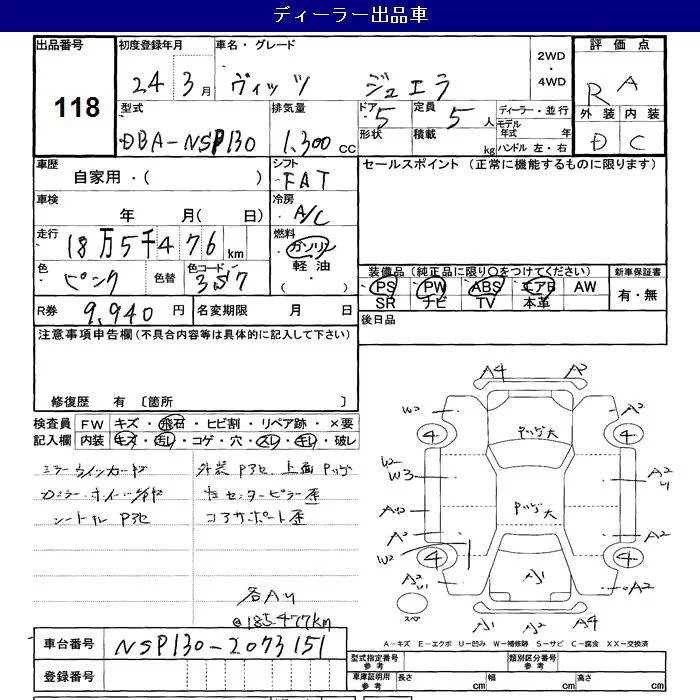 ディーラー出品車
出品番号 初度登録年月 車名・グレード 2WD・4WD 評価点
118
24年3月 ヴィッツ ジュエラ
R A
型式 排気量 ドア 5 定員 5人 ディーラー・並行 外装 内装
DBA-NSP130 1,300cc 形状 積載 kg モデル年式 年 ハンドル 左・右 D C
車歴 シフト セールスポイント (正常に機能するものに限ります)
自家用・( ) FAT
車検 冷房
年 月( 日) A/C
走行 燃料
18万5千476km ガソリン
軽油・
( )
色 色替 色コード 装備品(純正品に限り○をつけてください) 新車保証書
ピンク 357 PS PW ABS エアB AW 有・無
SR ナビ TV 本革
R券 9,940円 名変期限 月 日 後日品
注意事項申告欄(不具合内容等は具体的に記入して下さい)
修復歴 有 〔箇所 〕
検査員 FW キズ・飛石・ヒビ割・リペア跡・×要
記入欄 内装 キズ・汚レ・コゲ・穴・スレ・キレ・破レ
シートセル P3セ
外装 P3セ 上面 Pハゲ
センターピラー歪
コアサポート歪
各AU
@185,477km
A4 A2
W2 A2
4 4
Pハゲ大
W2
W3 A2
Pハゲ大
A2 A2
W2
4 4
A2 A1 A2
スペア
A1 A2 A4
A－キズ E－エクボ U－凹み W－補修跡 S－サビ C－腐食 XX－交換済
車台番号 NSP130-2073151
登録番号
型式指定番号 参考 類別区分番号 参考
車庫証明用 参考 長さ cm 幅 cm 高さ cm